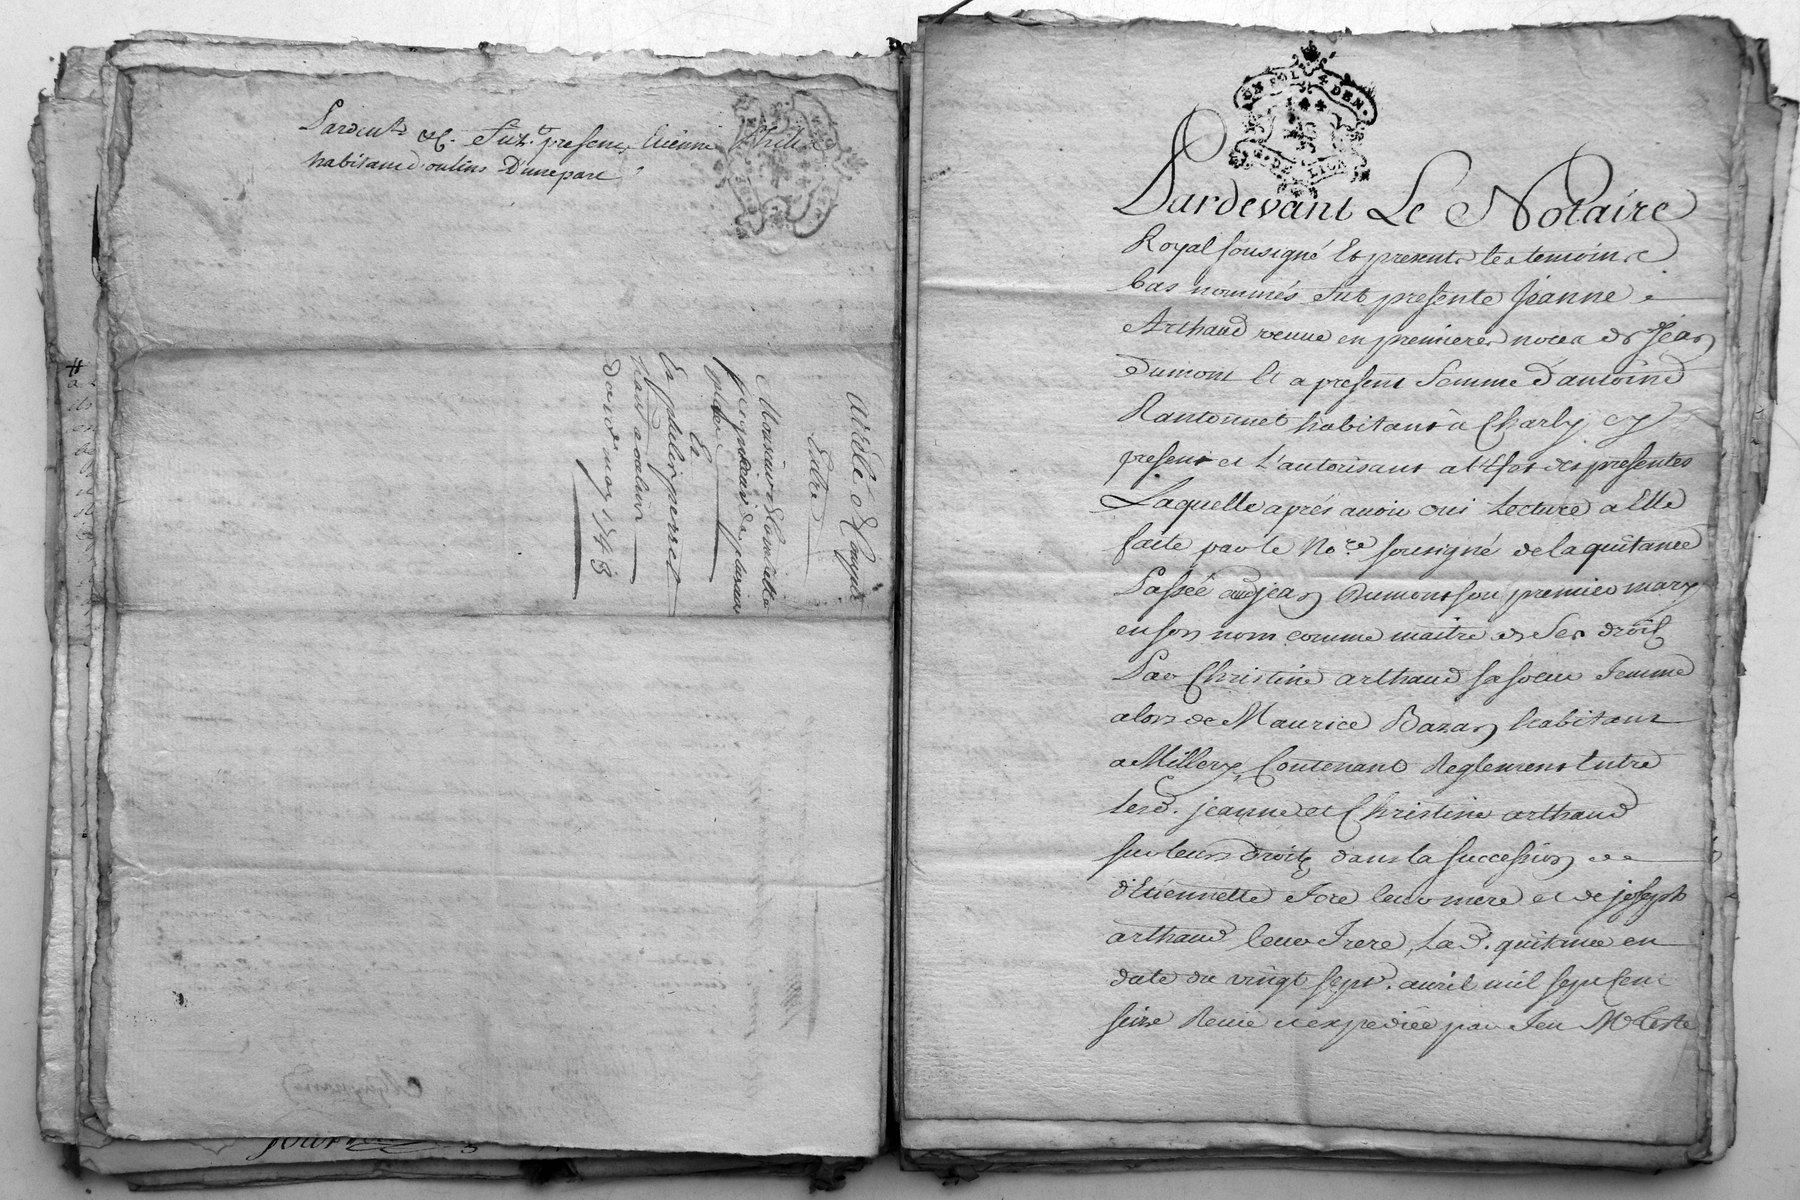 Pardevt &c. fut presens Etienne
habitant d'oulins D'une part
arrêté de Compte
Entre
Monsieur
Et
Et philiperret
Du 10 may 1743
UN SOL 4 DEN.
G. DE LION
Pardevant Le Notaire
Royal sousigné Et presents les temoins
bas nommés fut presente Jeanne
Arthaud veuve en premieres noces de Jean
Dumont Et a present femme d'antoine
Rantonnet habitant à Charly cy
present et L'autorisant a l'Efet des presentes
Laquelle aprés auoir oui Lecture a Elle
faite par le No.re sousigné de la quitance
Passée audt jean Dumont son premier mary
en son nom comme maitre de ses droits
Par Christine arthaud sa soeur femme
alors de Maurice Bazan habitant
a Millery, Contenant Reglement Entre
lesd. jeanne et Christine arthaud
sur leurs droits dans la succession
d'Etiennette fore leur mere et de joseph
arthaud leur frere, Lad. quitance en
date du vingt sept. auril mil sept cent
seize Receüe et expediée par feu Me